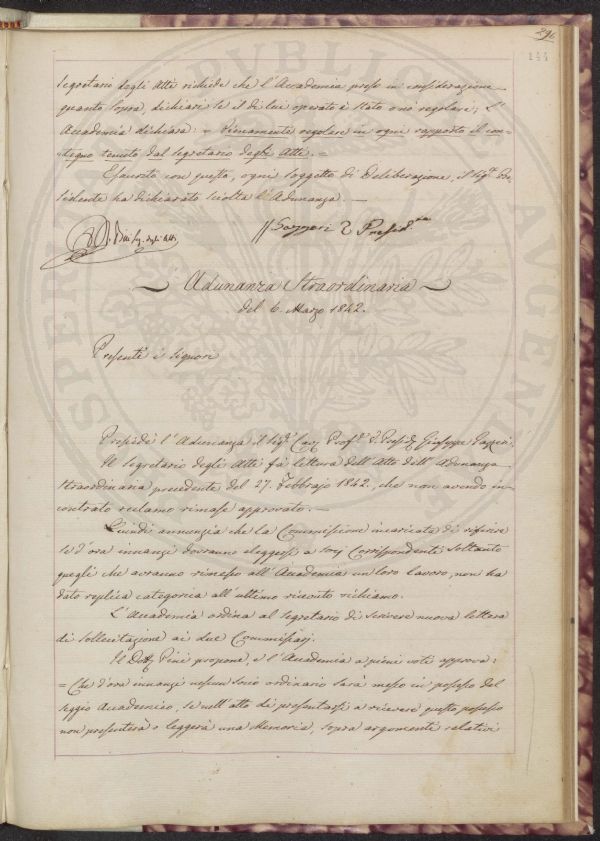 291
segretario degli Atti richiede che l'Accademia preso in considerazione
quanto sopra, dichiari se il di lui operato è stato o nò regolare; L'
Accademia dichiara: = Pienamente regolare in ogni rapporto il con-
tegno tenuto dal segretario degli Atti. =
Esaurito con questo, ogni soggetto di Deliberazione, il Sigr. Pre-
sidente ha dichiarato sciolta l'Adunanza. —
Pini Seg. degli Atti
Gazzeri Presid.te
Adunanza Straordinaria
del 6. Marzo 1842.
Presenti i signori
Presiedè l'Adunanza il Sigr. Cav. Prof. V. Presid. Giuseppe Gazzeri.
Il segretario degli Atti fà lettura dell'Atto dell'Adunanza
straordinaria precedente del 27. Febbrajo 1842., che non avendo in-
contrato reclamo rimase approvato. —
Quindi annunzia che la Commissione incaricata di riferire
se d'ora innanzi dovranno eleggersi a socj Corrispondenti soltanto
quegli che avranno rimesso all'Accademia un loro lavoro, non ha
dato replica categoria all'ultimo ricevuto richiamo.
L'Accademia ordina al segretario di scrivere nuova lettera
di sollecitazione ai due Commissarj.
Il Dott. Pini propone, e l'Accademia a pieni voti approva:
= Che d'ora innanzi nessun socio ordinario sarà messo in possesso del
seggio Accademico, se nell'atto di presentarsi a ricevere questo possesso
non presenterà o leggerà una Memoria, sopra argomenti relativi
SPERNIT
PVBLICE
AVGENDIS